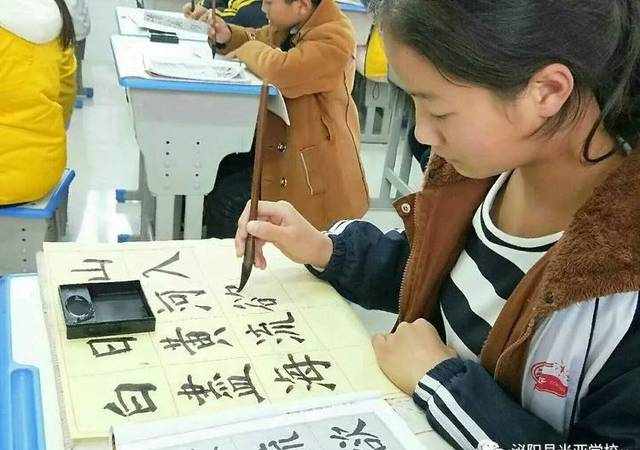 山 入
河 谷
日 黄 流
白 盡 海
流 欲
泌阳县光亚学校